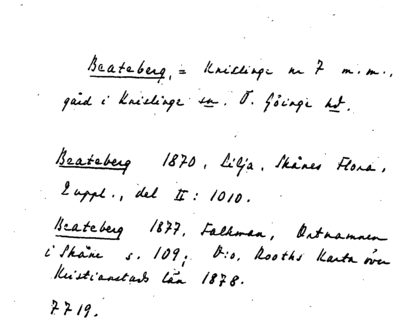 Beateberg, = Knislinge nr 7 m.m.,
gård i Knislinge sn. Ö. Göinge hd.
Beateberg 1870, Lilja, Skånes Flora,
2 uppl., del II: 1010.
Beateberg 1877, Falkman, Ortnamnen
i Skåne s. 109; D:o, Rooths Karta över
Kristianstads län 1878.
7719.